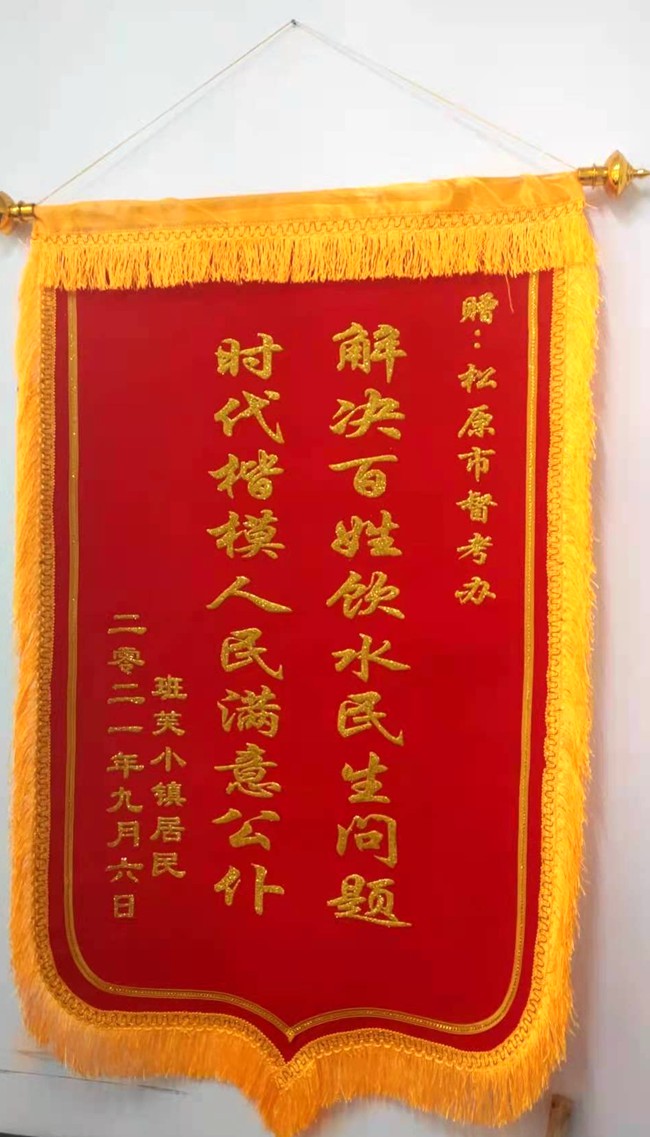 赠：松原市督考办
解决百姓饮水民生问题
时代楷模人民满意公仆
班芙小镇居民
二零二一年九月六日